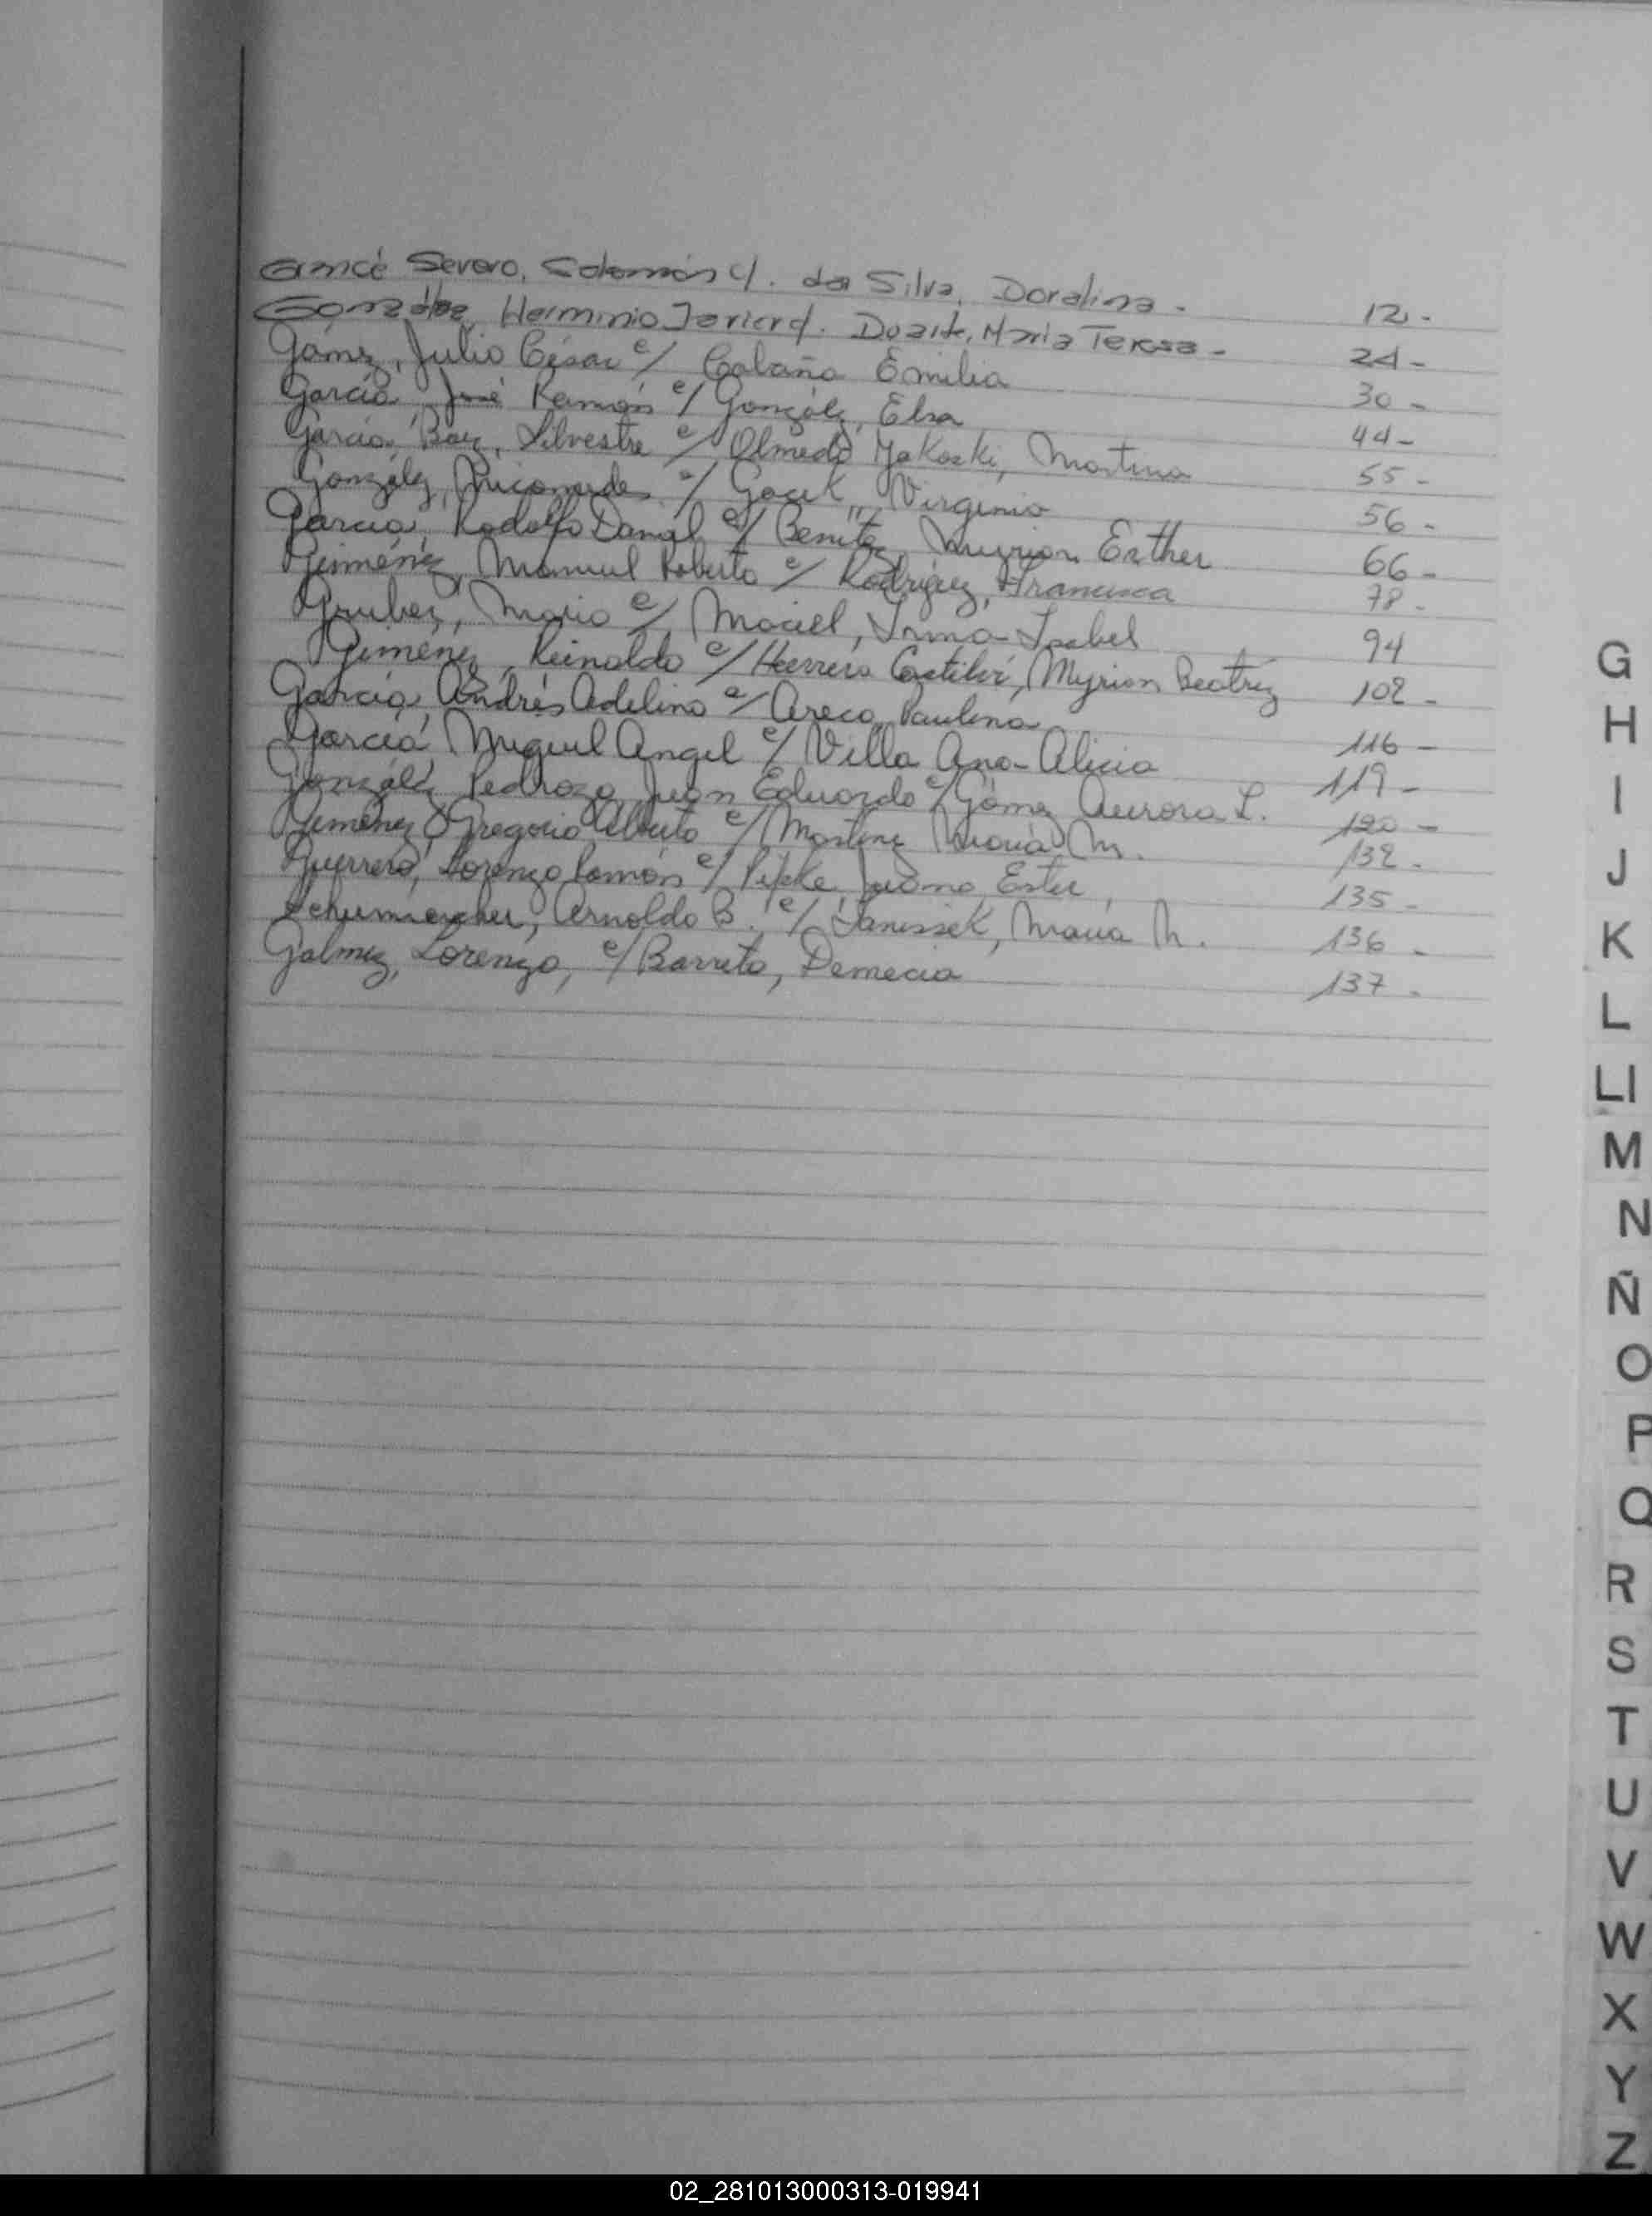 Severo, Solomón c/. da Silva, Doralina - 12 -
González, Herminio Javier c/. Duarte, María Teresa - 24 -
Gómez, Julio César c/ Cabaña Emilia 30 -
García José Ramón c/ González, Elsa 44 -
García Silvestre c/ Olmedo Martina 55 -
González, c/ Virginia 56 -
García, Rodolfo Daniel c/ Benítez, Myrian Esther 66 -
Giménez, Manuel Roberto c/ Rodríguez, Francisca 78 -
Gruber, Mario c/ Maciel, Irma Isabel 94
Giménez, Reinaldo c/ Herrera Myrian Beatriz 102 -
García, Andrés Adelino c/ Areco, Paulina 116 -
García, Miguel Angel c/ Villa Ana Alicia 119 -
González Pedrozo, Juan Eduardo c/ Gómez Aurora L. 120 -
Giménez, Gregorio Alberto c/ Martínez María M. 132 -
Guerrero, Lorenzo Ramón c/ Juana Ester 135 -
Schumacher, Arnoldo B. c/ Janissek, María M. 136 -
Galmez, Lorenzo, c/ Barreto, Demecia 137 -
G
H
I
J
K
L
Ll
M
N
Ñ
O
P
Q
R
S
T
U
V
W
X
Y
Z
02_281013000313-019941